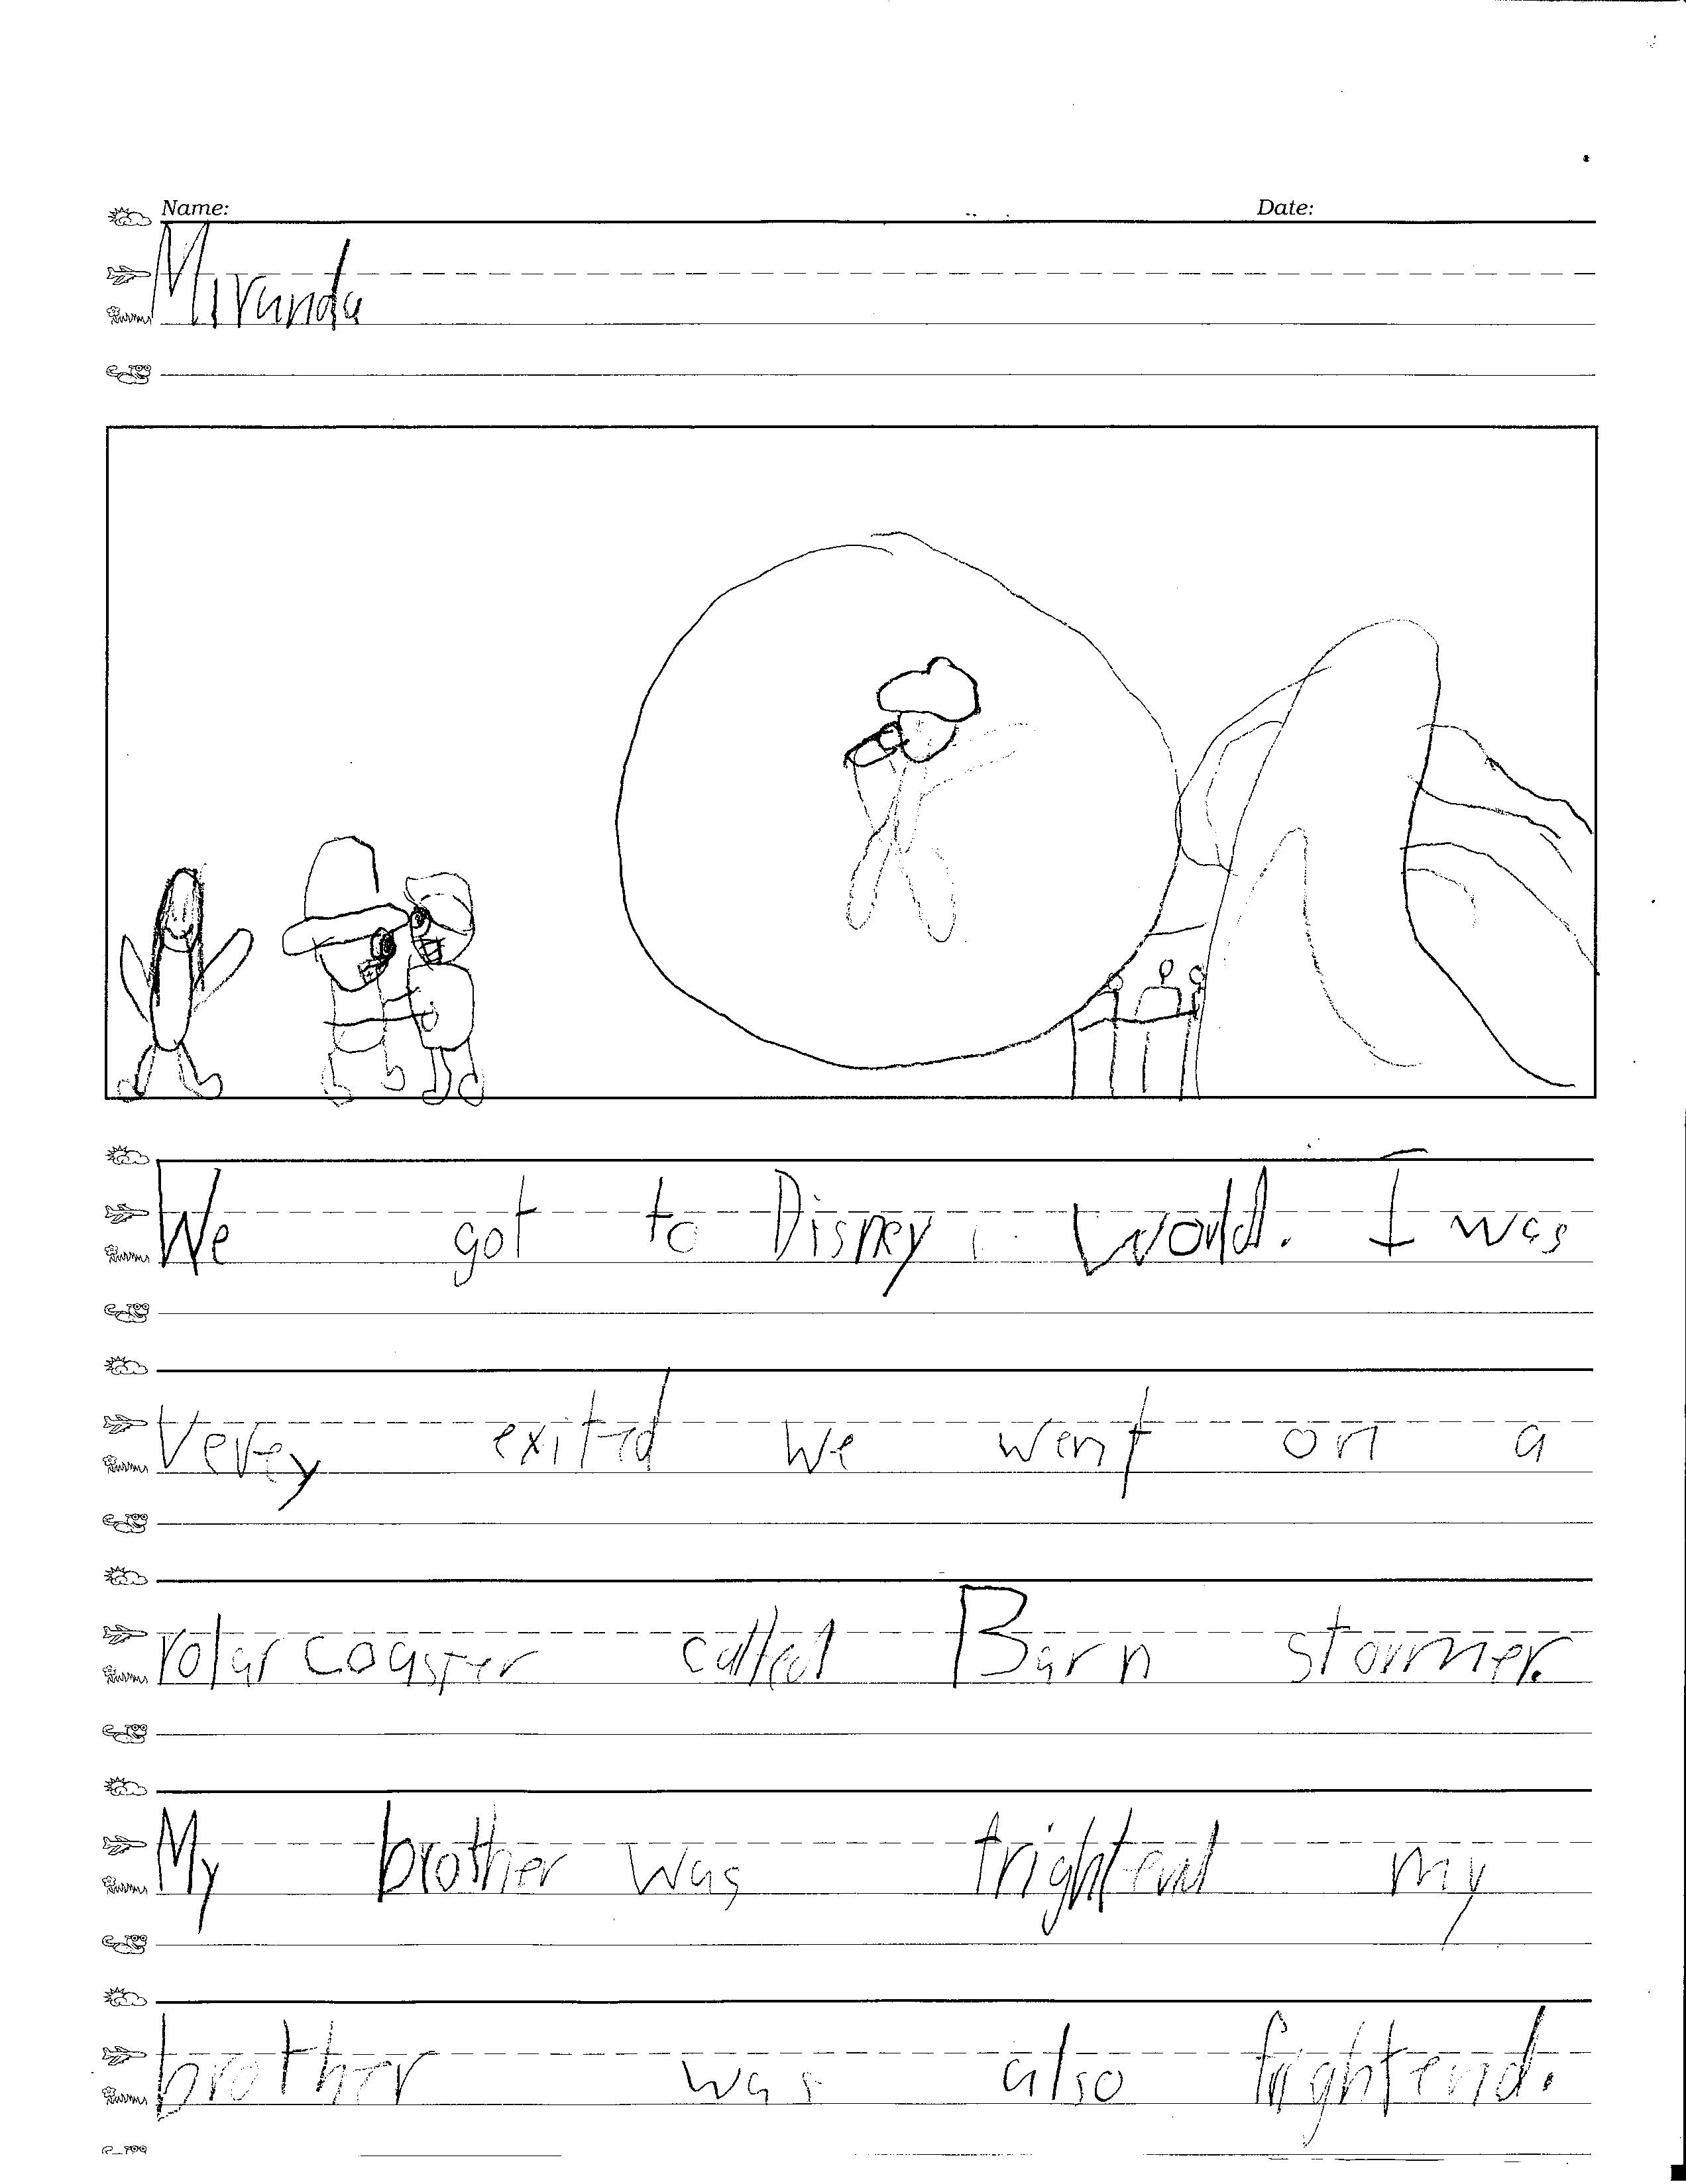 Name: Date:
Miranda
We got to Disney World. I was
verey exited we went on a
rolar coaster called Barn stormer.
My brother was frightend my
brother was also frightend.